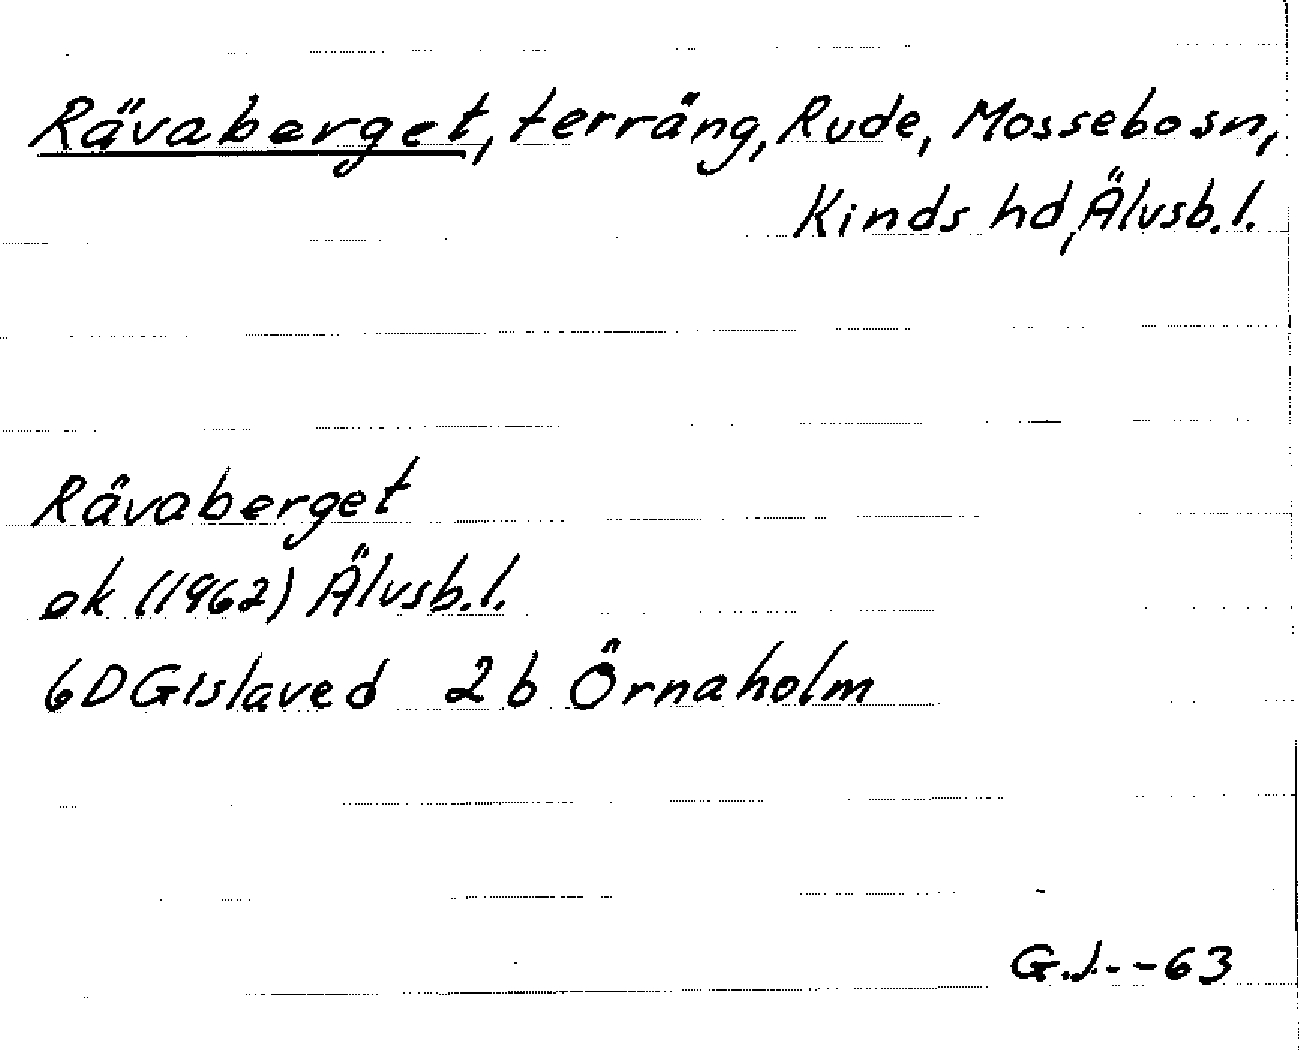 Rävaberget, terräng, Rude, Mossebo sn,
Kinds hd, Älvsb.l.
Rävaberget
ek (1962) Älvsb.l.
6D Gislaved 2b Örnaholm
G.J. -63